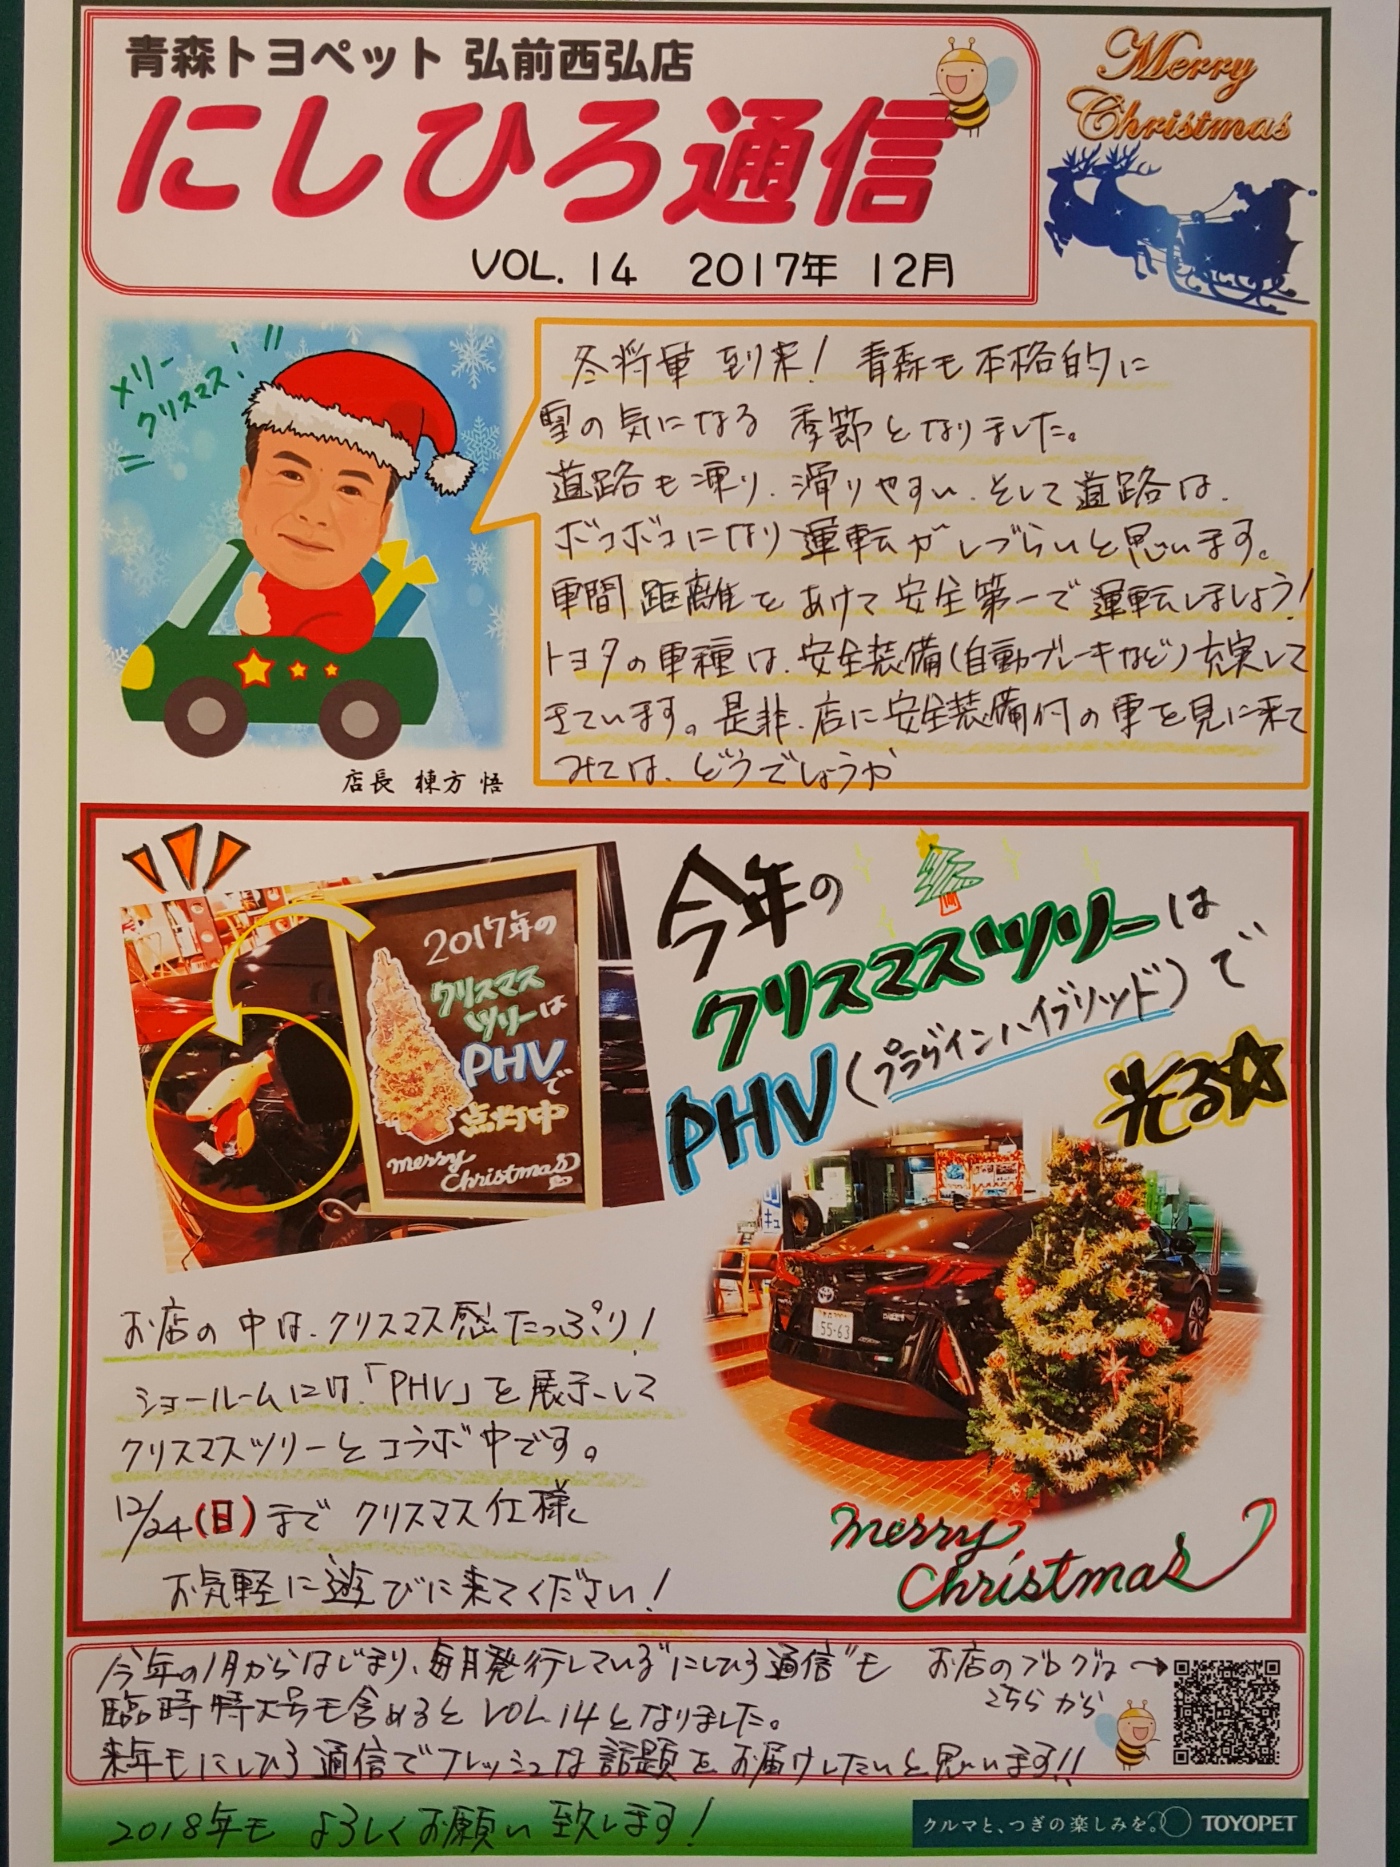 青森トヨペット 弘前西弘店
にしひろ通信
VOL. 14 2017年 12月
Merry
Christmas
メリー
クリスマス!
冬将軍 到来! 青森も本格的に
雪の気になる 季節となりました。
道路も凍り、滑りやすい、そして道路は、
ボコボコになり運転がしづらいと思います。
車間距離をあけて安全第一で運転しましょう!
トヨタの車種は、安全装備(自動ブレーキなど)充実して
きています。是非、店に安全装備付の車を見に来て
みては、どうでしょうか
店長 棟方 悟
今年の
クリスマスツリーは
PHV(プラグインハイブリッド)で
光る☆
2017年の
クリスマス
ツリーは
PHVで
点灯中
merry
Christmas
55-63
お店の中は、クリスマス感たっぷり!
ショールームには、「PHV」を展示して
クリスマスツリーとコラボ中です。
12/24(日)まで クリスマス仕様
お気軽に遊びに来てください!
merry
Christmas
今年の1月からはじまり、毎月発行している"にしひろ通信"も
臨時特大号も含めるとVOL.14となりました。
来年もにしひろ通信でフレッシュな話題をお届けしたいと思います!!
お店のブログは→
こちらから
2018年も よろしくお願い致します!
クルマと、つぎの楽しみを。 TOYOPET